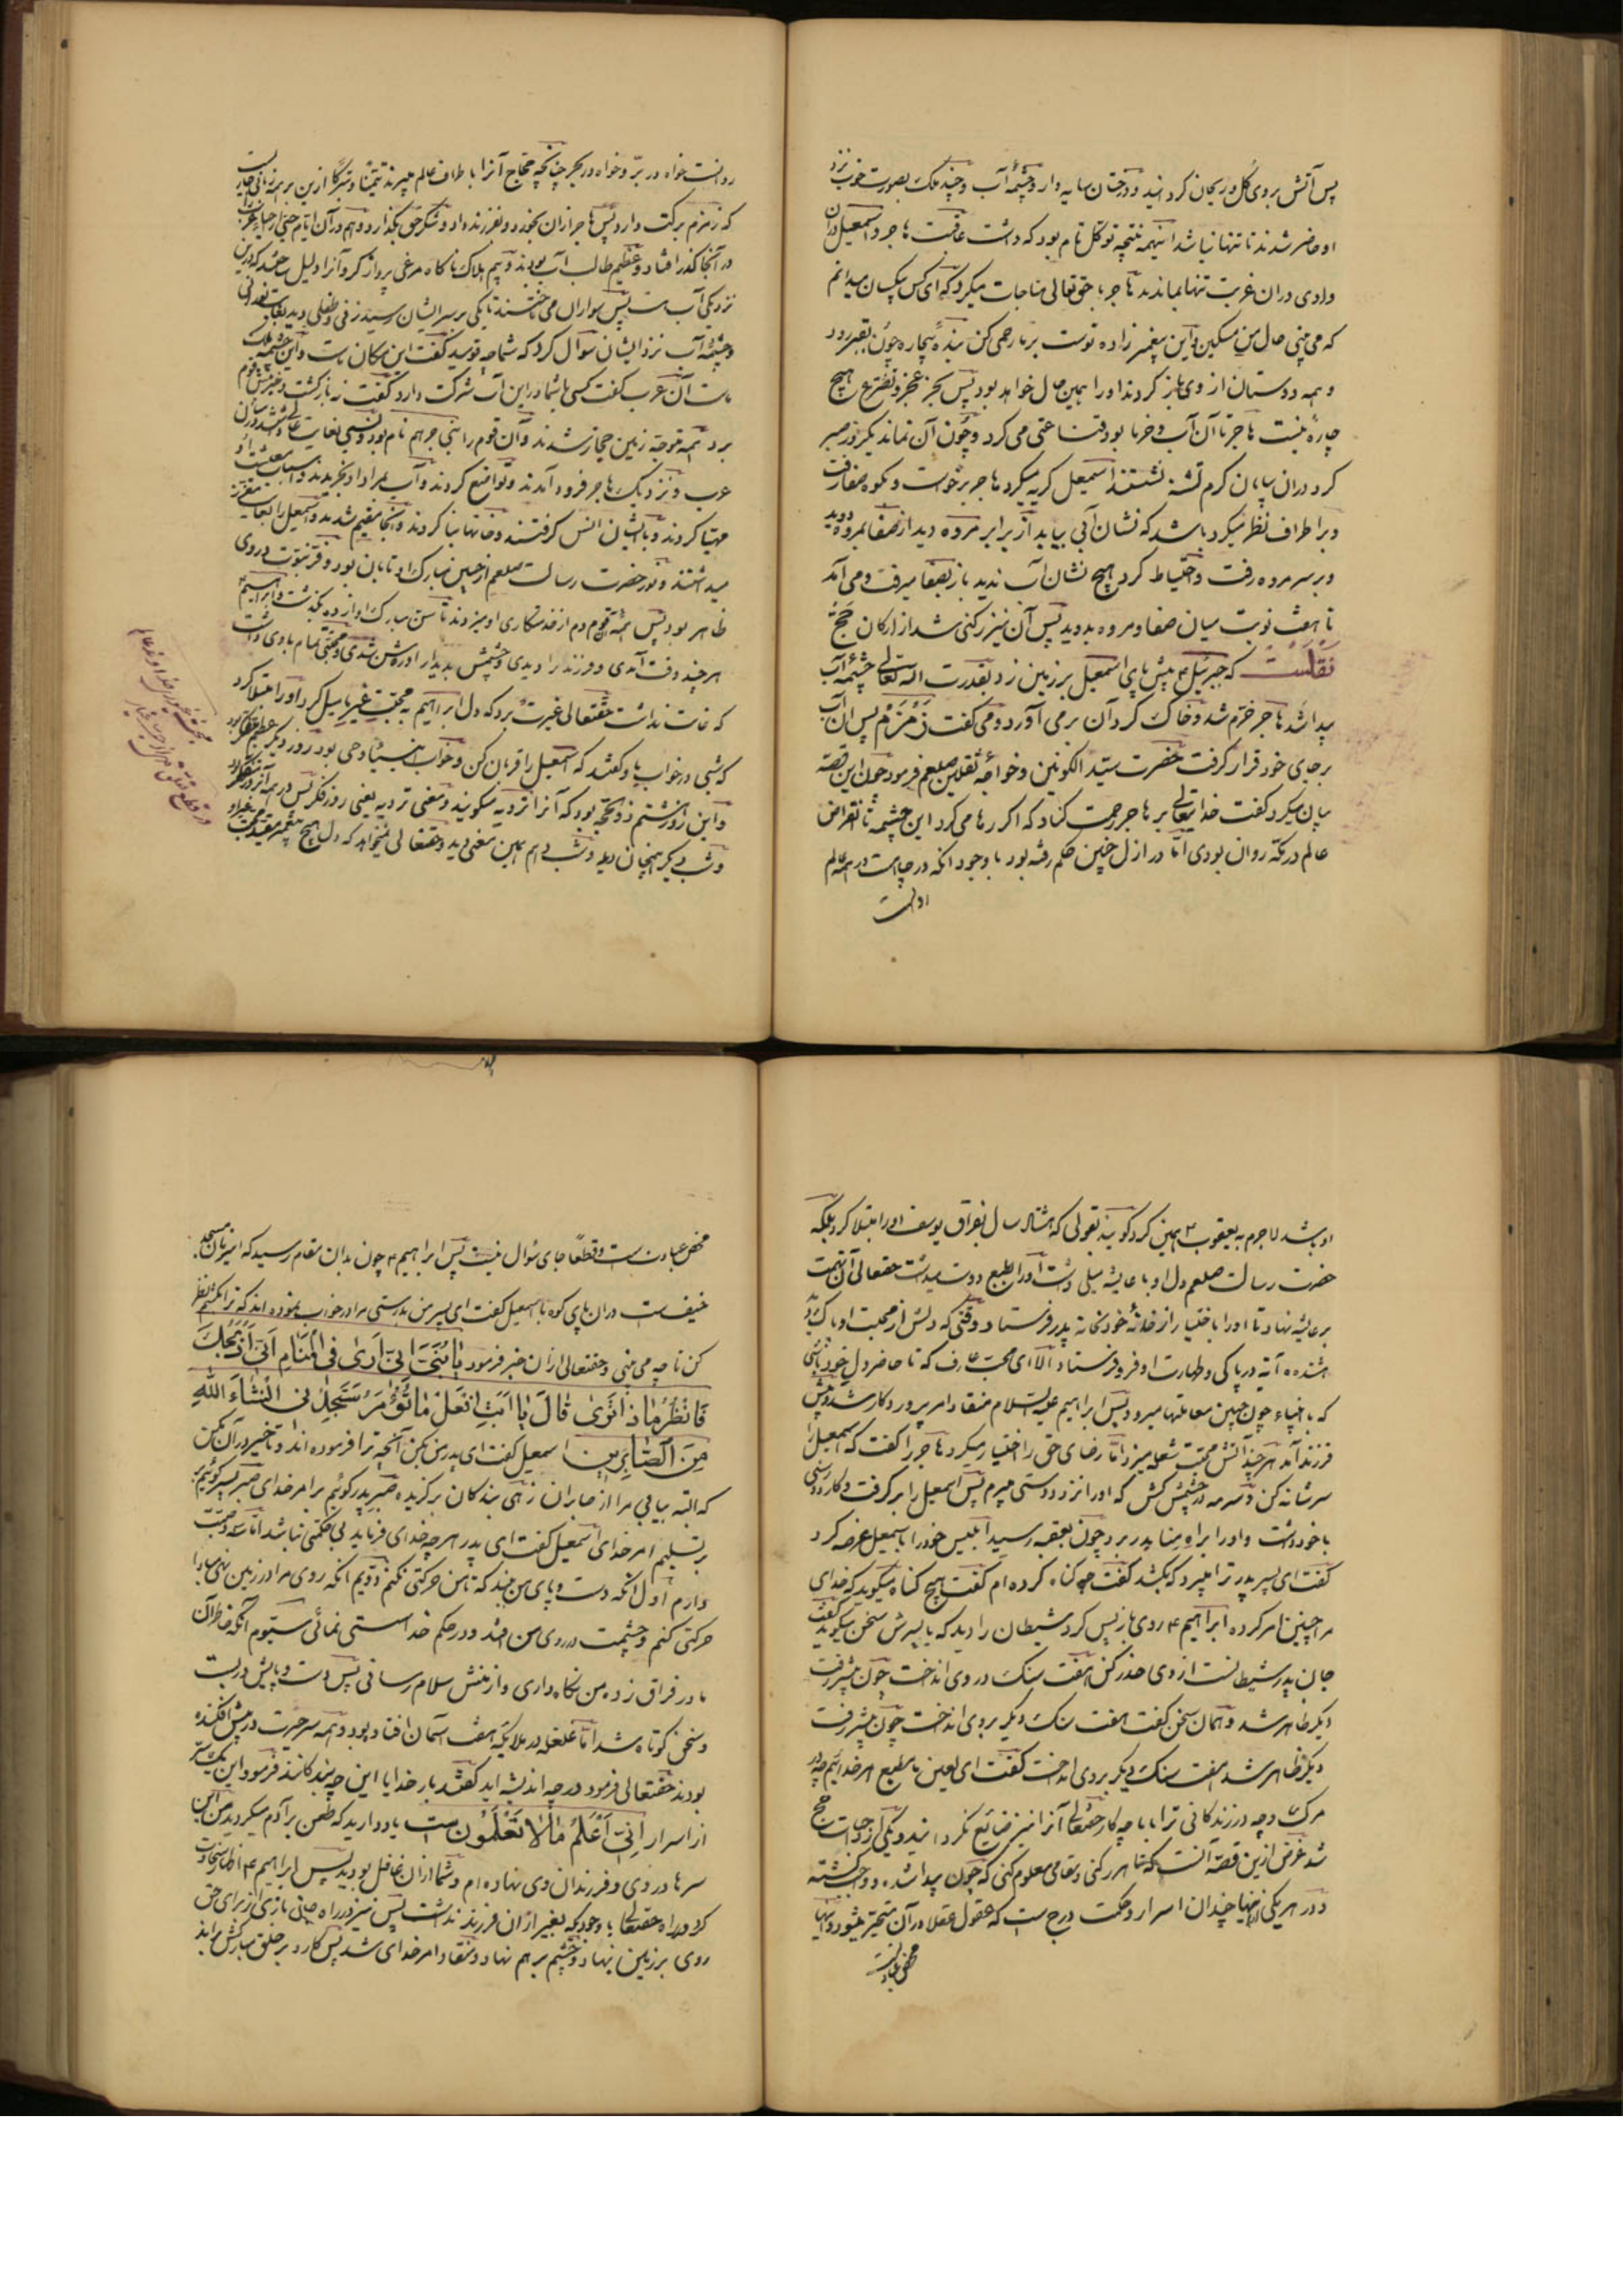 پس آتش بروی گل و ریحان کردانید و درختان سایه دار و چشمهٔ آب و چند ملک بصورت خوب نزد
او حاضر شدند تا تنها نباشد اینهمه نتیجه توکل تام بود که داشت عاقبت هاجر و اسمعیل دران
وادی دران غربت تنها بماندند هاجر با حق تعالی مناجات میکرد که ای کس بیکسان میدانم
که می بینی حال من مسکین و این پیغمبر زاده توست بر ما رحمی کن بنده بیچاره چون بقبر رود
و همه دوستان از وی باز کردند او را همین حال خواهد بود پس بجز عجز و تضرع هیچ
چاره نیست هاجر تا آن آب و خرما بود قناعتی می کرد و چون آن نماند یکروز صبر
کرد دران بیابان کرم تشنه نشستند اسمعیل کریه میکرد هاجر برخواست و بکوه صفا رفت
و بر اطراف نظر میکرد باشد که نشان آبی بیابد از برابر مروه دید از صفا بمروه دوید
و بر سر مروه رفت و احتیاط کرد هیچ نشان آب ندید باز بصفا میرفت و می آمد
تا هفت نوبت میان صفا و مروه بدوید پس آن نیز رکنی شد از ارکان حج
نقلست که جبرئیل ع پیش پای اسمعیل بر زمین زد بقدرت اله تعالی چشمه آب
پیدا شد هاجر خرم شد و خاک کرد آن برمی آورد و می گفت زمزم پس آن آب
برجای خود قرار گرفت حضرت سید الکونین و خواجه ثقلین صلعم فرمود چون این قصه
بیان میکرد گفت خدایتعالی بر هاجر رحمت کناد که اکر رها می کرد این چشمه تا انقراض
عالم در مکه روان بودی اما در ازل چنین حکم رفته بود با وجود انکه در چاه است در همه عالم
روانست
روانست خواه در بر و خواه در بحر چنانچه حجاج آنرا باطراف عالم میبرند تیمنا و تبرکا ازین بر همه
که زمزم برکت دارد پس هاجر ازان بخورد و بفرزند داد و شکر حق بگذارد و هم در آن ایام جمعی از احیاء عرب را
در آنجا گذر افتاد و عظیم طالب آب بودند و بیم هلاک ناگاه مرغی پرواز کرد آنرا دلیل
نزدیکی آب است پس سواران می جستند تا یکی بر سر ایشان رسید زنی و طفلی دید
و چشمهٔ آب نزد ایشان سوال کرد که شما چه نوعید گفت این مکان ماست و این چشمه ملک
ماست آن عرب گفت کسی با شما در این آب شرکت دارد گفت نه بازگشت و خبر
برد همه متوجه زمین حجاز شدند و آن قوم را بنی جرهم نام بود
عرب و نزدیک هاجر فرود آمدند و تواضع کردند و آب بمراد او بخریدند و اسباب معیشت او
مهیا کردند و با ایشان انس گرفتند و خانها بنا کردند و آنجا مقیم شدند و اسمعیل را بغایت معزز
میداشتند و نور حضرت رسالت صلعم از جبین مبارک او تابان بود و فر نبوت در وی
ظاهر بود پس همه قوم دم از خدمتکاری او میزدند تا سن مبارک او از ده بگذشت و ابراهیم ع
هر چند وقت آمدی و فرزند را دیدی و چشمش بدیدار او روشن شدی و محبتی تمام با وی داشت
که غایت نداشت حقتعالی غیرت برد که دل ابراهیم به محبت غیر ما میل کرد او را مبتلا کرد
که شبی در خواب باو گفتند که اسمعیل را قربان کن و خواب انبیا وحی بود روز دیگر
و این روز هشتم ذو الحجه بود که آنرا ترویه میگویند و معنی ترویه یعنی روز فکر پس در همه آنروز
و شب دیگر همچنان دید و شب دهم همین معنی دید و حقتعالی نمیخواهد که دل هیچ پیغمبر
او باشد لاجرم به یعقوب ع همین کرد گویند بقولی که هشتاد سال بفراق یوسف او را مبتلا کرد بلکه
حضرت رسالت صلعم دل او با عایشه میلی داشت او را بطبع دوست میداشت حقتعالی آن تهمت
بر عایشه نهاد تا او را باختیار از خانهٔ خود بخانه پدر فرستاد وقتی که دلش از محبت او پاک
شد ده آیه در پاکی و طهارت او فرو فرستاد الا ای محب عارف که تا حاضر دل خود باشی
که با انبیاء چون چنین معاملتها میرود پس ابراهیم علیه السلام منقاد امر پروردگار شد و پیش
فرزند آمد هر چند آتش محبت شعله میزد اما رضای حق را اختیار میکرد هاجر را گفت که اسمعیل را
سر شانه کن و سرمه در چشمش کش که او را نزد دوستی میبرم پس اسمعیل را بر گرفت و کارد و رسنی
با خود داشت و او را براه منا بدر برد چون بعقبه رسید ابلیس خود را باسمعیل عرضه کرد
گفت ای پسر پدر ترا میبرد که بکشد گفت چه گناه کرده ام گفت هیچ گناه میگوید که خدای
مرا چنین امر کرده ابراهیم ع روی باز پس کرد شیطان را دید که با پسرش سخن میگوید گفت
جان پدر شیطانست از وی حذر کن هفت سنک در وی انداخت چون پیشتر رفت
دیگر ظاهر شد و همان سخن گفت هفت سنک دیگر بروی انداخت چون پیشتر رفت
دیگر ظاهر شد هفت سنک دیگر بروی انداخت گفت ای لعین ما مطیع امر خدائیم چه در
مرک و چه در زندگانی ترا با ما چه کار حقتعالی آنرا نیز ضایع نکردانید و یکی از واجبات حج
شد غرض ازین قصه آنست که تا هر رکنی و مقامی معلوم کنی که چون پیدا شده و واجب گشته
و در هر یکی ازینها چندان اسرار و حکمت درج است که عقول عقلا در آن متحیر میشود و اینها
محض عبادت
محض عبادتست و قطعا جای سؤال نیست پس ابراهیم ع چون بدان مقام رسید که امیر زمان مسجد
خیف است دران پای کوه با اسمعیل گفت ای پسر من بدرستی مرا در خواب نموده اند که ترا بکشم نظر
کن تا چه می بینی و حقتعالی ازان خبر فرمود یا بنی انی اری فی المنام انی اذبحک
فانظر ماذا تری قال یا ابت افعل ما تؤمر ستجدنی ان شاء الله
من الصابرین اسمعیل گفت ای پدر من بکن آنچه ترا فرموده اند و تاخیر در آن مکن
که البته بیابی مرا از صابران زهی بندگان برگزیده صبر پدر گوئیم بر امر خدای صبر پسر گوئیم
بر تسلیم امر خدای اسمعیل گفت ای پدر هر چه خدای فرماید بی حکمتی نباشد اما سه وصیت
دارم اول آنکه دست و پای من ببند که تا من حرکتی نکنم دویم انکه روی مرا در زمین نهی مبادا
حرکتی کنم و چشمت در روی من افتد و در حکم خدا سستی نمائی سیوم آنکه خاطر آن
مادر فراق زده من نگاه داری و از منش سلام رسانی پس دست و پایش در بست
و سخن کوتاه شد اما غلغله در ملایکه هفت آسمان افتاده بود و همه سر حیرت در پیش افکنده
بودند حقتعالی فرمود در چه اندیشه اید گفتند بار خدایا این چه بندگانند فرمود این
از اسرار انی اعلم ما لا تعلمون است یاد دارید که طعن بر آدم میکردید من این
سرها در وی و فرزندان وی نهاده ام و شما ازان غافل بودید پس ابراهیم ع
کرد در راه حقتعالی با وجود که بغیر از ان فرزند نداشت پس نیز در راه جانی بازی از برای حق
روی بر زمین نهاد و چشم بر هم نهاد و منقاد امر خدای شد پس کارد بر حلق مبارکش براند